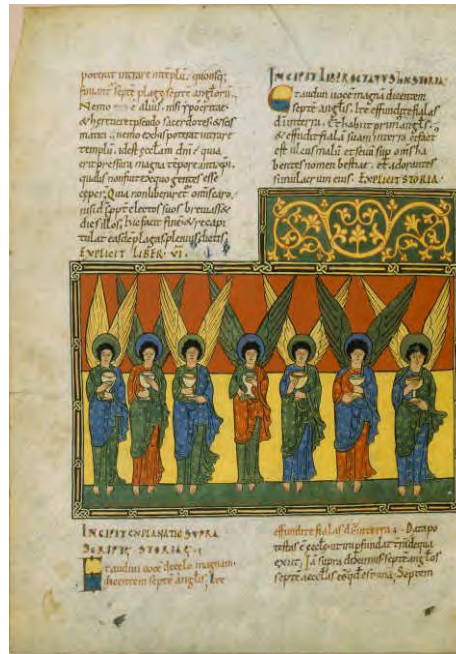 poterat intrare in templū. quousq;
finirent septē plage septē angtorū.
Nemo alius. nisi ypocritae
& heretici & pseudo sacerdotes &
nemo ex his poterat intrare
templū. id est eccłam dnī
erit pressura magna tēpore antexpi.
qualis non fuit ex quo gentes esse
ceper Quia non liberaret omīs caro.
nisi dś propt electos suos breviass&
dies illos. hic facit finē & recapi
tulat easdē plagas plenius dictis
EXPLICIT LIBER VI.
INCIPIT LIBER OCTAVUS IN STORIA.
Et audivi vocē magnā dicentem
septē anglis. Ite effundite fialas
di in terra. Et habiit prim angls.
& effudit fialā suam in terra
est ulcus malū et sevū sup omīs ha
bentes nomen bestiae. et adorantes
simulacrum eius. EXPLICIT STORIA.
INCIPIT EXPLANATIO SUPRA
SCRIPTE STORIAE.
Et audivi vocē de celo magnam
dicentem septē anglis; Ite
effundite fialas dī in terra. Data po
testas ē eccle ut īram dī de qua
exiit, Iā supra diximus septē angłos
septē eccłas Septem